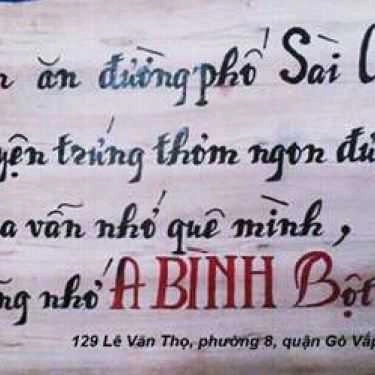 ăn đường phố Sài
trứng thơm ngon
vẫn nhớ quê mình,
nhớ A BÌNH Bột
129 Lê Văn Thọ, phường 8, quận Gò Vấp